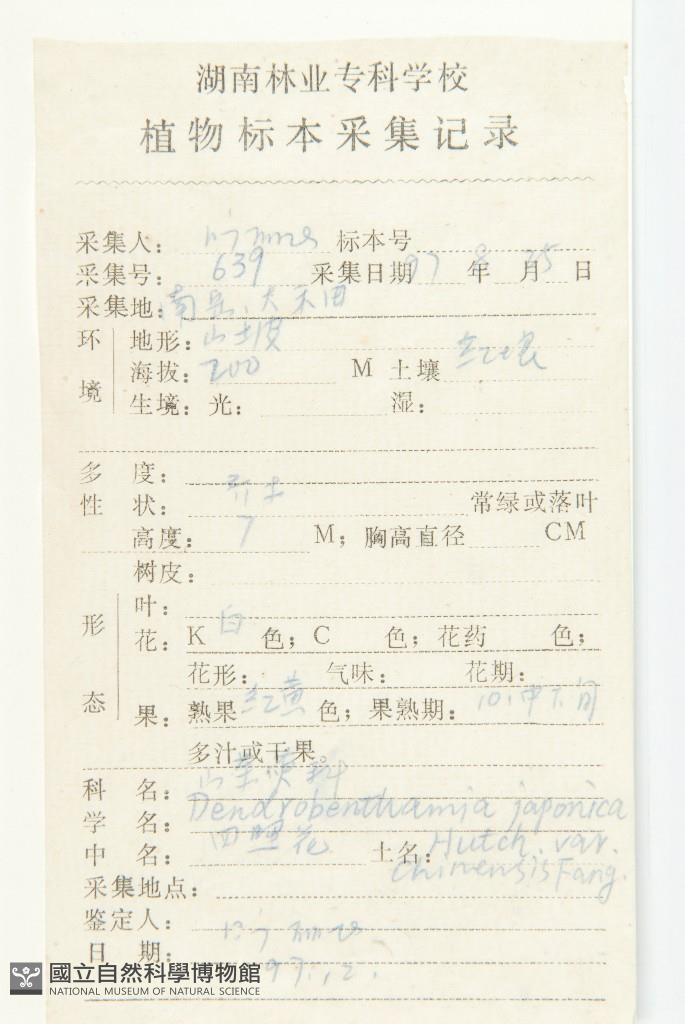 湖南林业专科学校
植物标本采集记录
采集人： 标本号
采集号： 639 采集日期 97 年 8 月 25 日
采集地： 南岳
环境
地形： 山坡
海拔： 200 M 土壤 红壤
生境： 光： 湿：
多 度：
性 状： 乔木 常绿或落叶
高度： 7 M； 胸高直径 CM
形态
树皮：
叶：
花： K 白 色； C 色； 花药 色；
花形： 气味： 花期：
果： 熟果 红黄 色； 果熟期： 10.中下旬
多汁或干果。
科 名： 山茱萸科
学 名： Dendrobenthamia japonica
中 名： 四照花 土名： Hutch. var.
chinensis Fang.
采集地点：
鉴定人：
日 期： 97.12.
國立自然科學博物館
NATIONAL MUSEUM OF NATURAL SCIENCE